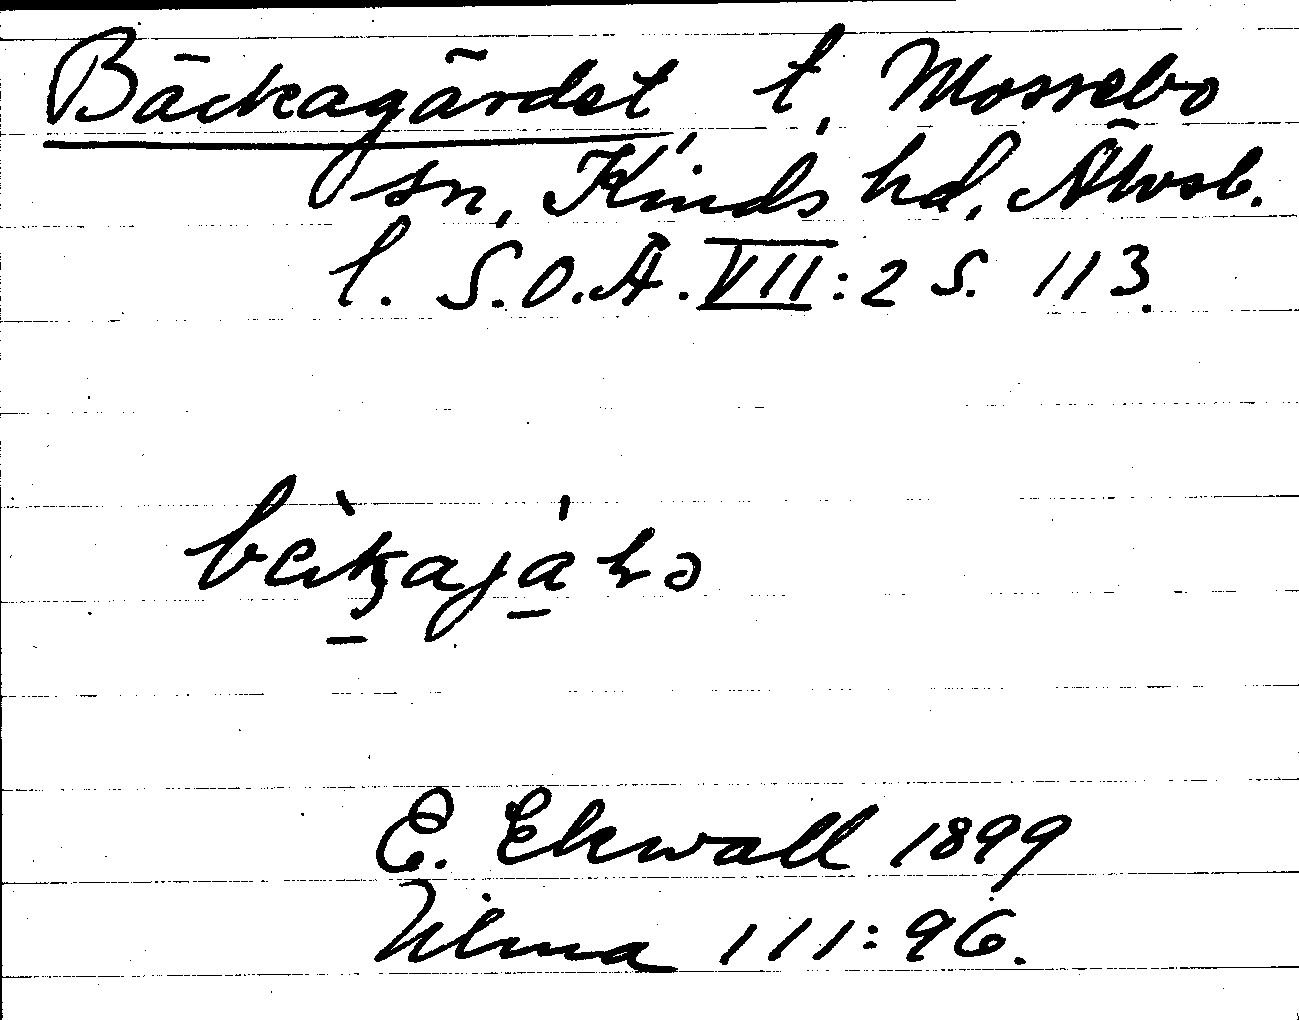 Bäckagärdet, t, Mossebo
sn, Kinds hd, Älvsb.
l. S.O.Ä. VII:2 S. 113.
E. Ekwall 1899
Ulma 111:96.